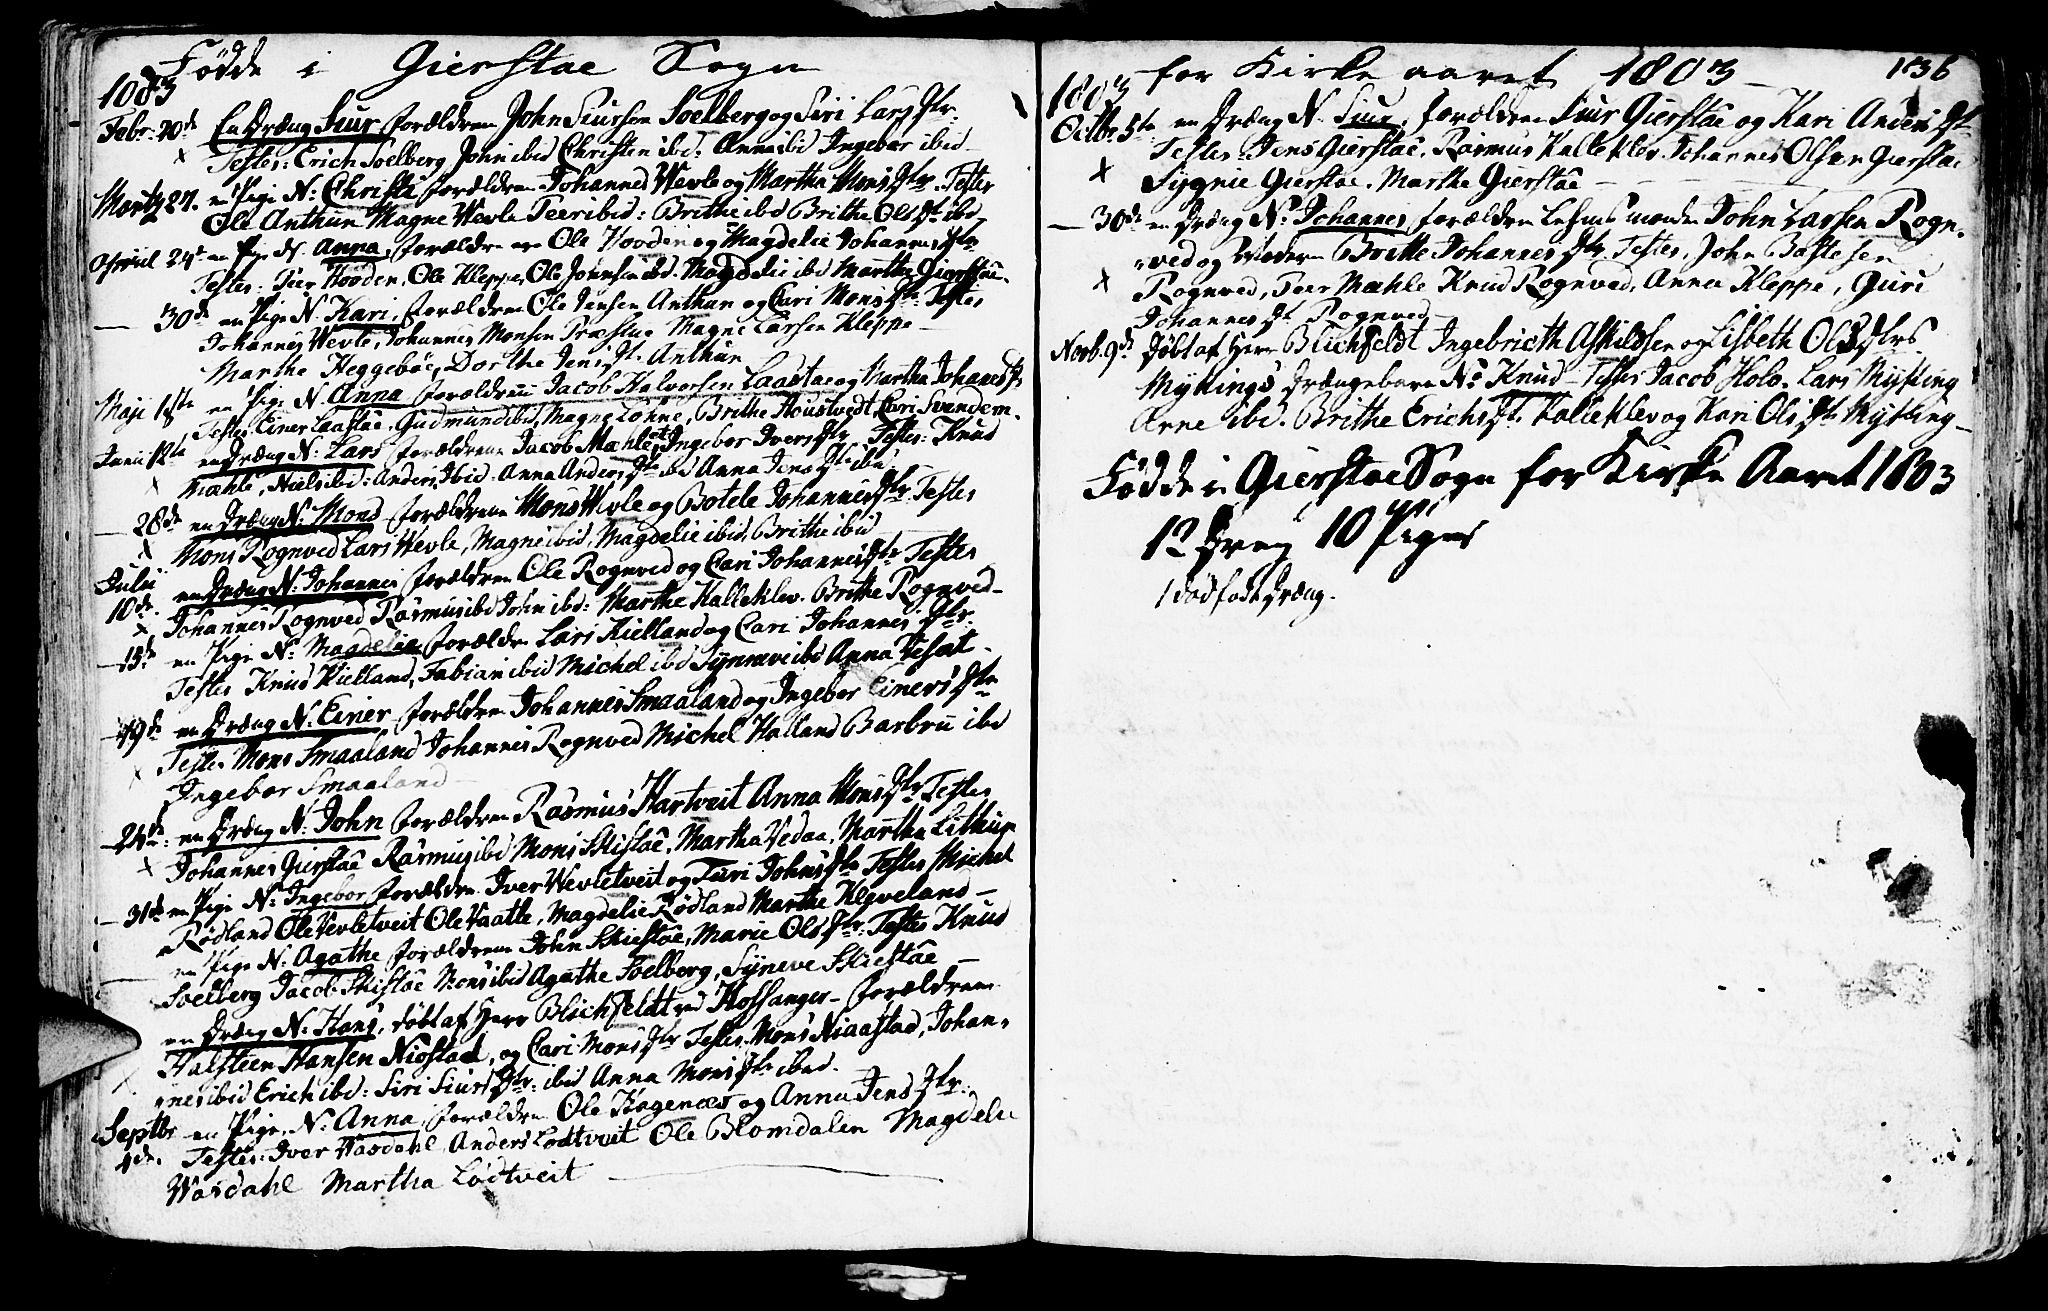 Fødde i Gierstae Sogn
1083
Febr: 20de En Dræng Siur forældren John Siursen Soelberg og Siri Lars Dtr.
Testes: Erich Soelberg John ibid Christen ibid: Anna ibid Ingebor ibid
Martz 27. en Pige N: Christi forældren Johannes Wevle og Martha Mons Dtr. Testes
Ole Anthun Magne Wevle Peer ibid: Brithe ibd Brithe Ols Dtr ibd
Apriil 24de en Pige N. Anna, forældren Ole Hooden og Magdelie Johannes Dtr
Testes. Hooden, Ole Kleppe, Ole Johnsen ibd. Magdelie ibd Martha Gierstae
— 30de en Pige N. Kari, forældren Ole Jensen Anthun og Cari Mons Dtr. Testes
Johannes Wevle, Johannes Monsen Præstue Magne Larsen Kleppe —
Marthe Heggeböe, Dorthe Jens Dt. Anthun
Maji 1ste en Pige N. Anna forældren Jacob Halvorsen Laastae og Martha Johannes Ds
Testes Einer Laastae, Gudmund ibid, Magne Lønne, Brithe Houstvedt, Cari Svendem.
Junii 12te en Dræng N: Lars forældren Jacob Mæhle et Ingebor Ivers Dtr. Testes: Knud
Mæhle, Niels ibid: Anders Ibid. Anna Anders Dtr ibd Anna Jens Dtr ibid
— 28de en Dræng N: Mons forældren Mons Wevle og Botele Johannes Dtr Testes
Mons Rognved Lars Wevle, Magne ibid, Magdelie ibid, Brithe ibid
Julii en Dræng N: Johannes forældren Ole Rognved og Cari Johannes Dtr Testes
10de. Johannes Rognved Rasmus ibd John ibd: Marthe Kalleklev. Brithe Rognved —
— 15de en Pige N: Magdelie forældren Lars Kielland og Cari Johannes Dtr.
Testes Knud Kielland, Fabian ibid Michel ibd Synneve ibd Anna
— 19de en Dræng N: Einer forældren Johannes Smaaland og Ingebor Einers Dtr
Testes Mons Smaaland Johannes Rognved Michel Halland Barbru ibd
Ingebor Smaaland —
— 24de: en Dræng N: John forældren Rasmus Hartveit Anna Mons Dtr Testes
Johannes Gierstae Rasmus ibd Mons Skistae, Martha Vedaa, Martha
— 31de en Pige N: Ingebor forældren Iver Wevletveit og Turi Johns Dtr Testes Michel
Rødland Ole Vevletveit Ole Vaatle, Magdelie Rødland Marthe Kleveland —
en Pige N. Agathe forældren John Skiestae, Marie Ols Dtr: Testes Knud
Soelberg Jacob Skistae Mons ibid Agathe Soelberg, Syneve Skiestae —
en Dræng N: Hans, døbt af Herr Blichfeldt ved Hossanger — forældren
Halsteen Hansen Niostad, og Cari Mons Dtr Testes Mons Niaastad, Johan-
nes ibid Erich ibd: Siri Siurs Dtr: ibid Anna Mons Dtr ibid.
Septbr en Pige N. Anna, forældren Ole Hagenæs og Anna Jens Dtr.
4de. Testes: Iver Wasdahl, Anders Lødtveit Ole Blomdalen Magdelie
Wasdahl Martha Lødtveit
for Kirke aaret 1803 — 136
1803
Octbr. 5te en Dræng N. Siur, forældren Siur Gierstae og Kari Anders Dt
Testes Jens Gierstae. Rasmus Kalleklev. Johannes Olsen Gierstae
Sygnie Gierstae. Marthe Gierstae —
— 30de en Dræng N: Johannes forældren John Larsen Rogn-
ved og Moderen Brithe Johannes Dtr. Testes, John Bastesen
Rognved, Peer Mæhle Knud Rognved, Anna Kleppe, Guri
Johannes Dt Rognved —
Novb. 9de Døbt af Herr Blichfeldt Ingebricth Askildsen og Lisbeth Ols Dtrs
Mykings Drængebarn N: Knud — Testes Jacob Holo. Lars Myking
Arne ibid. Brithe Erichs Dt. Kalleklev og Kari Ols Dtr Myking —
Fødde i Gierstae Sogn for Kirke Aaret 1803
12 Dreng 10 Piger
1 død født Dræng.